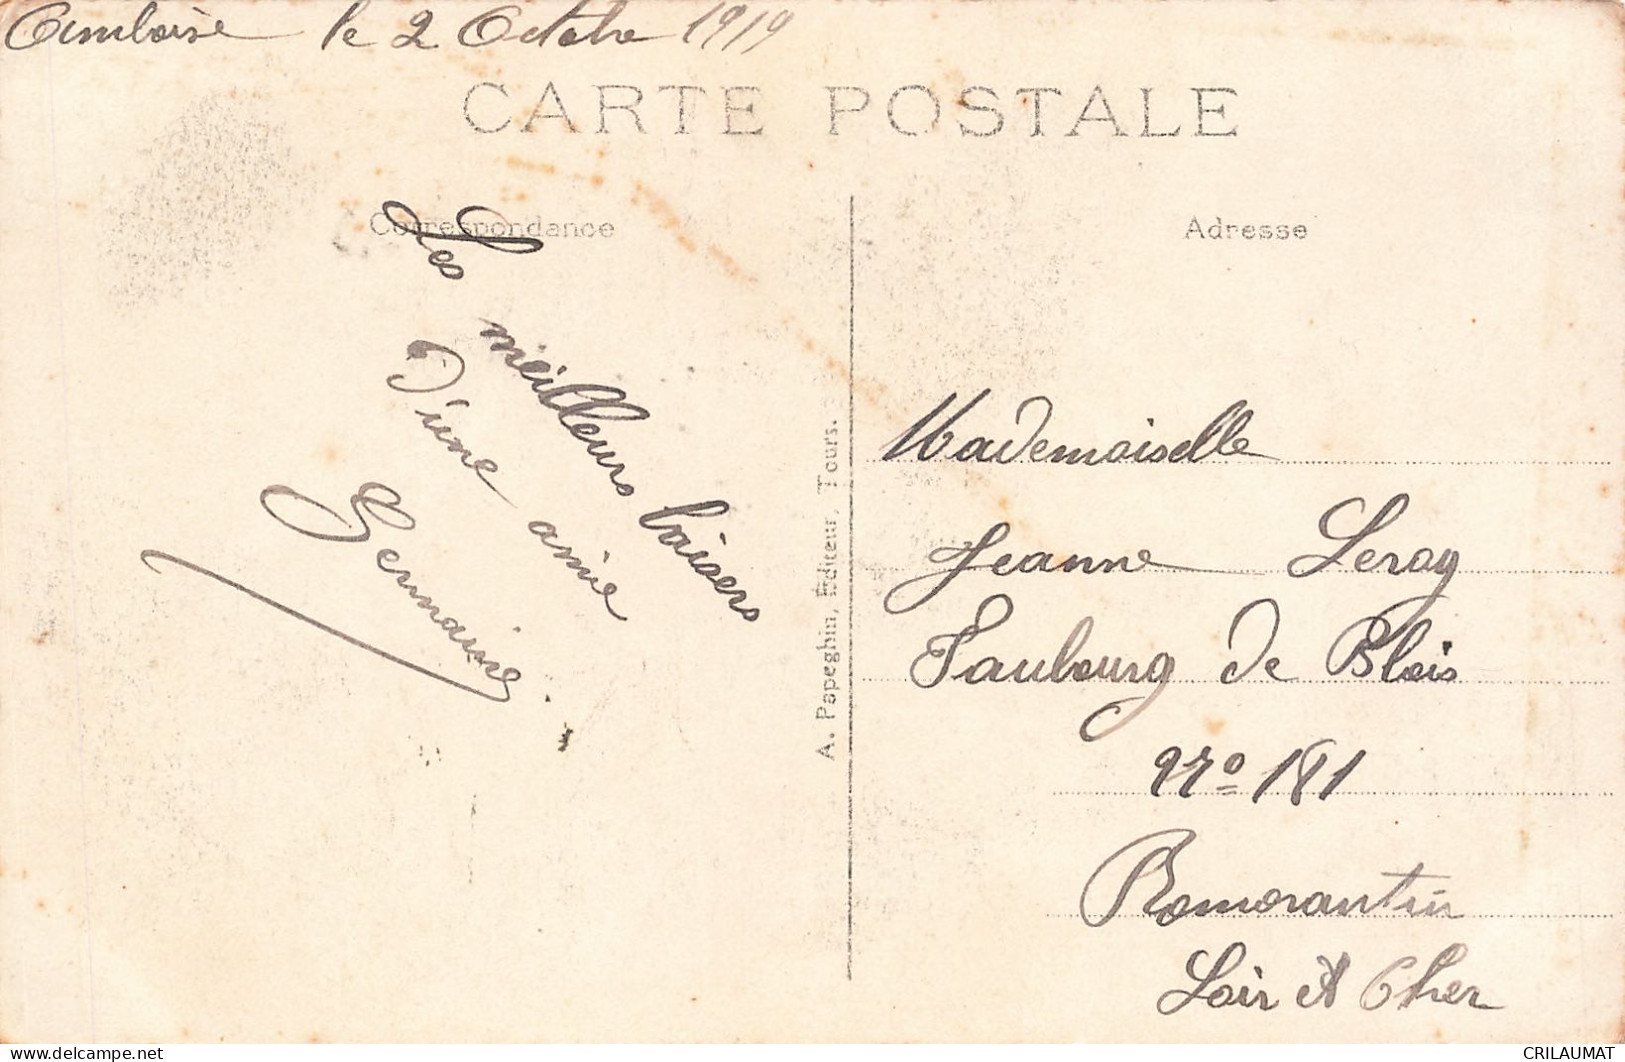 Amboise le 2 Octobre 1919
CARTE POSTALE
Correspondance
Adresse
Les meilleurs baisers
D'une amie
Germaine.
A. Papeghin, Éditeur, Tours.
Mademoiselle
Jeanne Leroy
Faubourg de Blois
No 181
Romorantin
Loir et Cher
CRILAUMAT